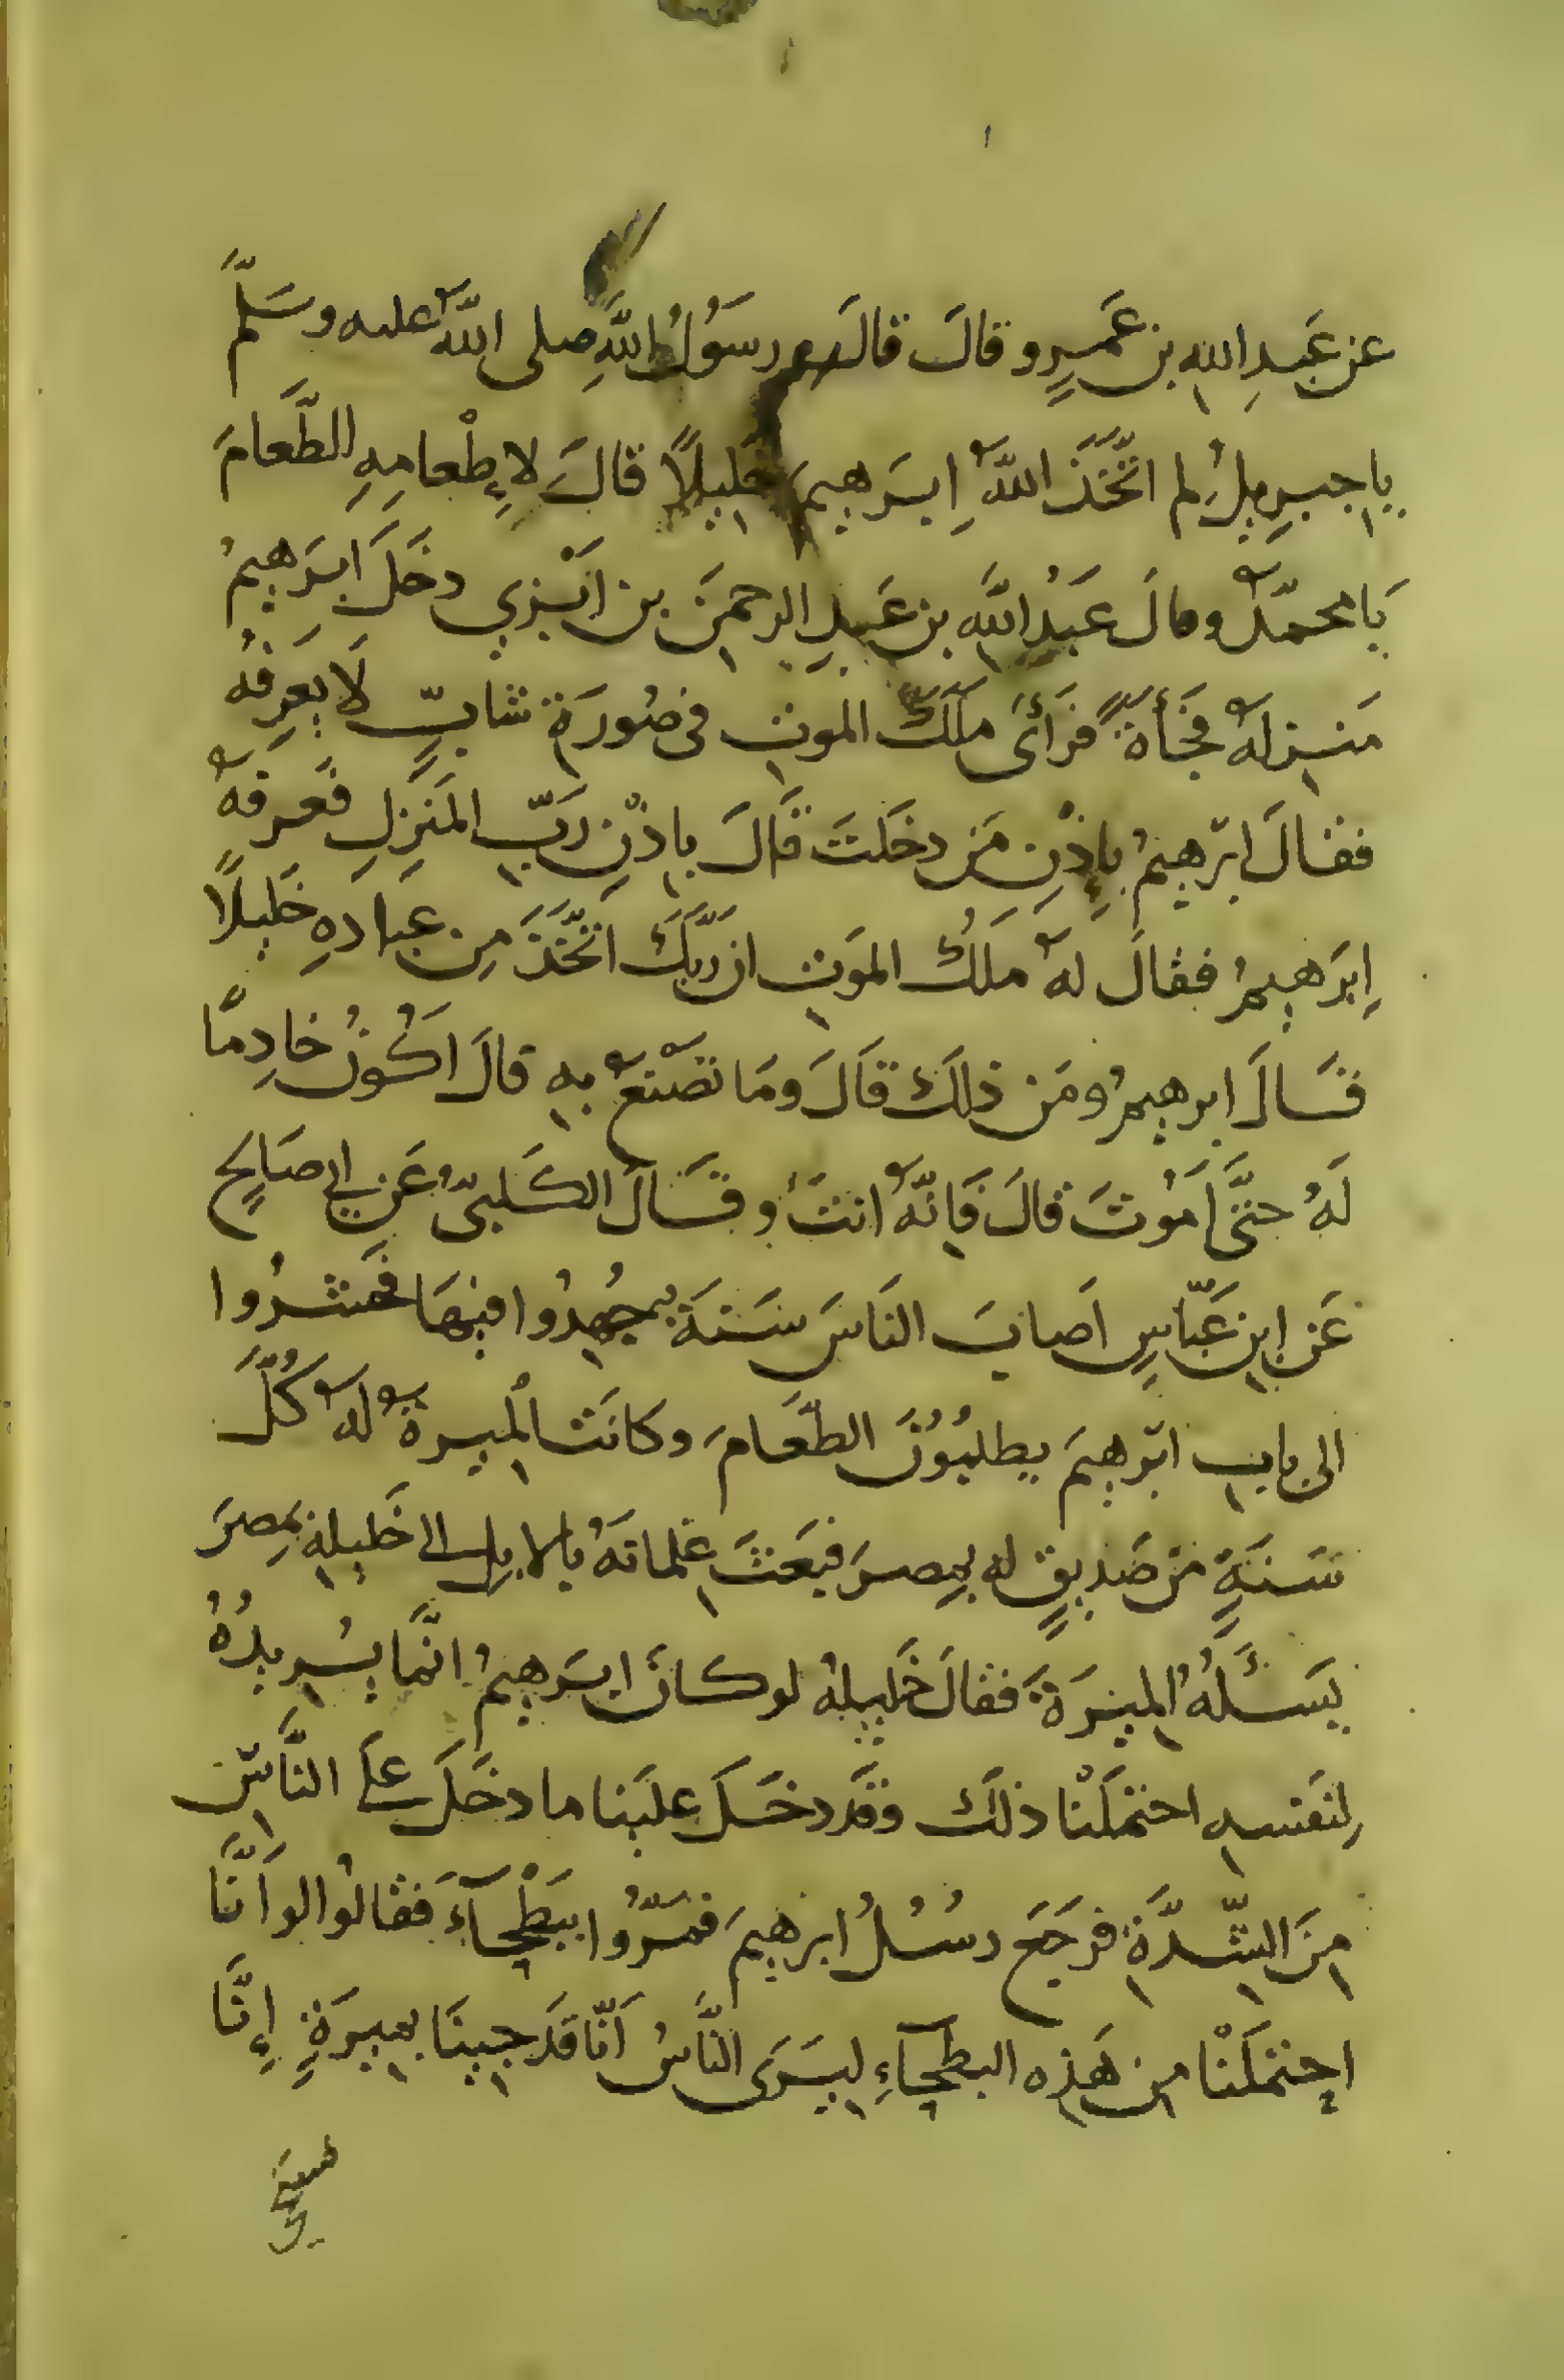 عَن عَبدِ اللهِ بن عَمرٍو قالَ قالَ رسَوُلُ اللَّهِ صلى اللَّهُ عليه وسَلَّمَ
يا جبرِيلُ لِم اتَّخَذَ اللَّهُ اِبرَهيمَ خَليلًا قالَ لإِطْعامِهِ الطَّعامَ
يَا محمّدُ وقالَ عَبْدُ اللَّهِ بن عَبدِ الرحمنَ بن اَبْزي دخَلَ ابرَهيمُ
مَنزلهُ فجَأةً فرَأىَ ملَكَ الموتِ فى صُورَةِ شابٍّ لَا يعَرِفهُ
فقالَ ابرَهيمُ بإِذْنِ مَن دخَلتَ قَالَ باِذْنِ رَبِّ المَنزِلِ فَعَرفهُ
اِبرَهيمُ فقالَ لهُ ملَكُ الموَتِ ان رَبَّكَ اتَّخَذَ مِن عبادِهِ خَليلًا
قَالَ ابرهيمُ ومَن ذلكَ قَالَ ومَا تصْنعُ بهِ قالَ اَكُونُ خادِمًا
لَهُ حتىَّ اَموُتَ قالَ فَانّهُ انتَ وقَالَ الكَلبىُّ عَن ابي صَالحٍ
عَن ابنِ عَبّاسٍ اَصابَ الناَسَ سَنةٌ جُهِدُوا فيهَا فحشرُوا
الى بابِ ابرَهيمَ يطلبُوُنَ الطَّعَامَ وكانَت الْميرةُ لهُ كُلَّ
سَنةٍ مَن صَدِيقٍ له بمِصرَ فبَعثَ غلمانَهُ بالابِلِ الى خَليلهِ بمِصرَ
يَسئَلهُ الميرَةَ فقالَ خَليلهُ لو كانَ ابرَهيمُ انَّما يُريدُهُ
لِنَفسهِ احتمَلْنا ذلكَ وقَد دخَلَ علَينا ما دخَلَ علَى النَّاسِ
مِنَ الشّدَّةِ فرجَعَ رسُلُ ابرهيمَ فمَرّوُا ببَطْحآءَ فقالُوا لو اَنَّا
احِتمَلْنا من هَذِه البطحآءِ ليَرَى النَّاسُ اَنّا قَد جِينَا بميرَةٍ إِنَّا